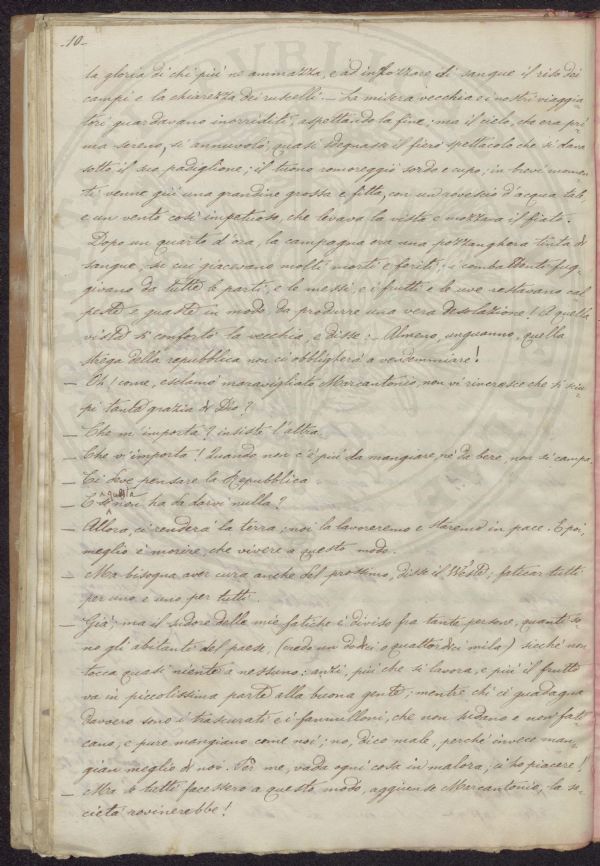 -10-
la gloria di chi più ne ammazza, e ad insozzare di sangue il riso dei
campi e la chiarezza dei ruscelli. — La misera vecchia e i nostri viaggia-
tori guardavano inorriditi, aspettando la fine; ma il cielo, che era pri-
ma sereno, si annuvolò, quasi sdegnasse il fiero spettacolo che si dava
sotto il suo padiglione; il tuono romoreggiò sordo e cupo; in brevi momen-
ti venne giù una grandine grossa e fitta, con un rovescio d'acqua tale,
e un vento così impetuoso, che levava la vista e mozzava il fiato.
Dopo un quarto d'ora, la campagna era una pozzanghera tinta di
sangue, su cui giacevano molti morti e feriti; i combattenti fug-
givano da tutte le parti, e le messi e i frutti e le uve restavano cal
peste e guaste in modo da produrre una vera desolazione! A quella
vista si confortò la vecchia, e disse: — Almeno, unguanno, quella
strega della repubblica non ci obbligherà a vendemmiare!
— Oh! come, esclamò maravigliato Marcantonio, non vi rincresce che si sciu-
pi tanta grazia di Dio?
— Che m'importa? insistè l'altra.
— Che v'importa! Quando non c'è più da mangiare, nè da bere, non si campa.
— Ci deve pensare la Repubblica.
— E se questa non ha da darvi nulla?
— Allora, ci renderà la terra; noi la lavoreremo e staremo in pace. E poi,
meglio è morire, che vivere a questo modo.
— Ma bisogna aver cura anche del prossimo, disse il West; faticar tutti
per uno e uno per tutti.
— Già; ma il sudore delle mie fatiche è diviso fra tante persone, quanti so-
no gli abitanti del paese, (credo un dodici o quattordici mila) sicchè non
tocca quasi niente a nessuno: anzi, più che si lavora, e più il frutto
va in piccolissima parte alla buona gente; mentre chi ci guadagna
davvero sono i trascurati e i fannulloni, che non sudano e non fati
cano, e pure mangiano come noi; no, dico male, perchè invece man-
gian meglio di noi. Per me, vada ogni cosa in malora; ci ho piacere!
— Ma se tutti facessero a questo modo, aggiunse Marcantonio, la so-
cietà rovinerebbe!